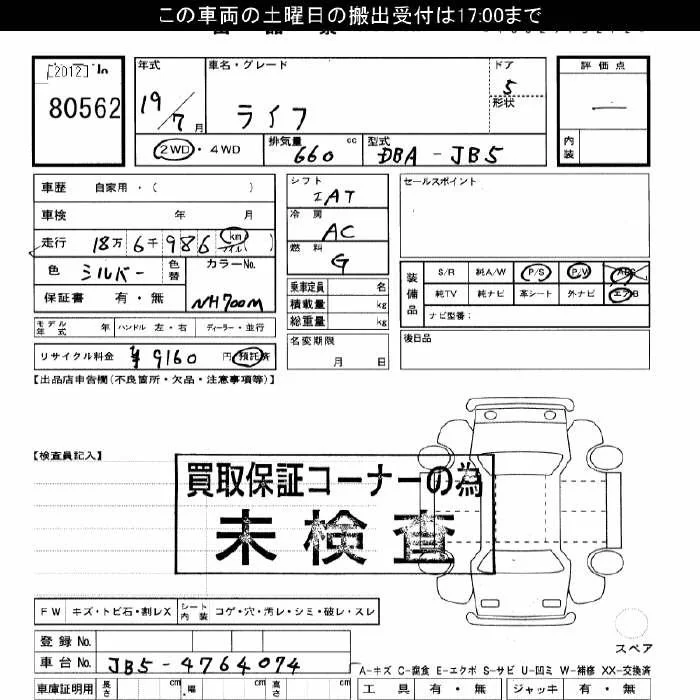 この車両の土曜日の搬出受付は17:00まで
[2012] In
80562
年式
19/7月
車名・グレード
ライフ
ドア
5
形状
評価点
―
内装
2WD・4WD
排気量 660 cc
型式 DBA-JB5
車歴 自家用・( )
車検 年 月
走行 18万6千986 km マイル( )
色 シルバー 色替
カラーNo. NH700M
保証書 有・無
モデル年式 年 ハンドル 左・右 ディーラー・並行
リサイクル料金 ¥9160円 預託済
シフト IAT
冷房 AC
燃料 G
乗車定員 名
積載量 kg
総重量 kg
名変期限
月 日
セールスポイント
装備品
S/R 純A/W P/S P/W ABS
純TV 純ナビ 革シート 外ナビ エアB
ナビ型番:
後日品
【出品店申告欄(不良箇所・欠品・注意事項等)】
【検査員記入】
買取保証コーナーの為
未検査
FW キズ・トビ石・割レX シート内装 コゲ・穴・汚レ・シミ・破レ・スレ
スペア
登録 No.
車台 No. JB5-4764074
A-キズ C-腐食 E-エクボ S-サビ U-凹ミ W-補修 XX-交換済
車庫証明用 長さ cm 幅 cm 高さ cm
工具 有・無 ジャッキ 有・無